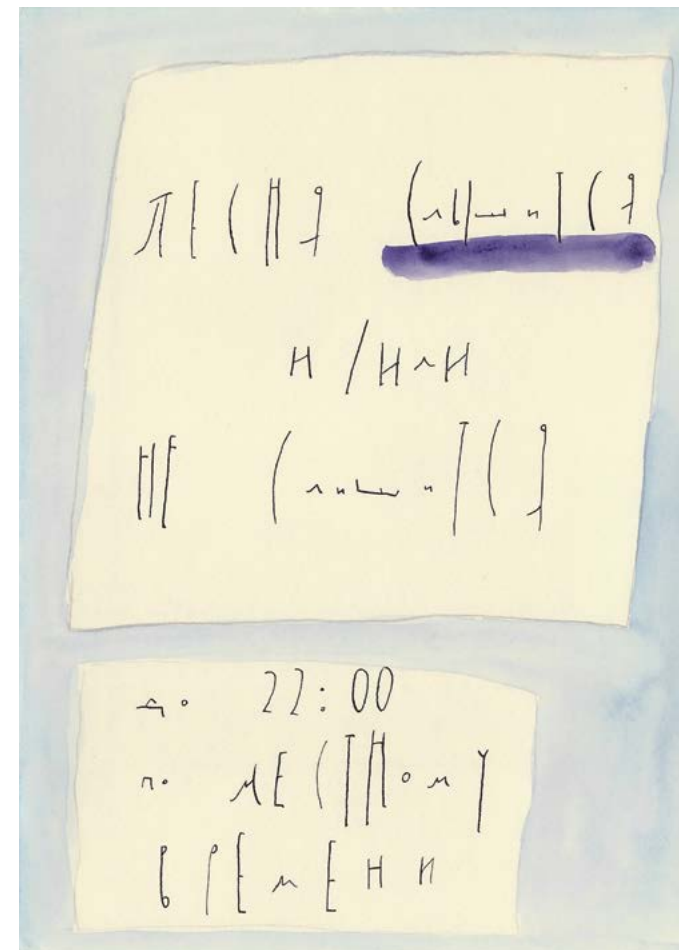 ПЕСНЯ СлышиТСЯ
И / ИлИ
НЕ СлышиТСЯ
до 22:00
по мЕСТНому
вРЕмЕНи